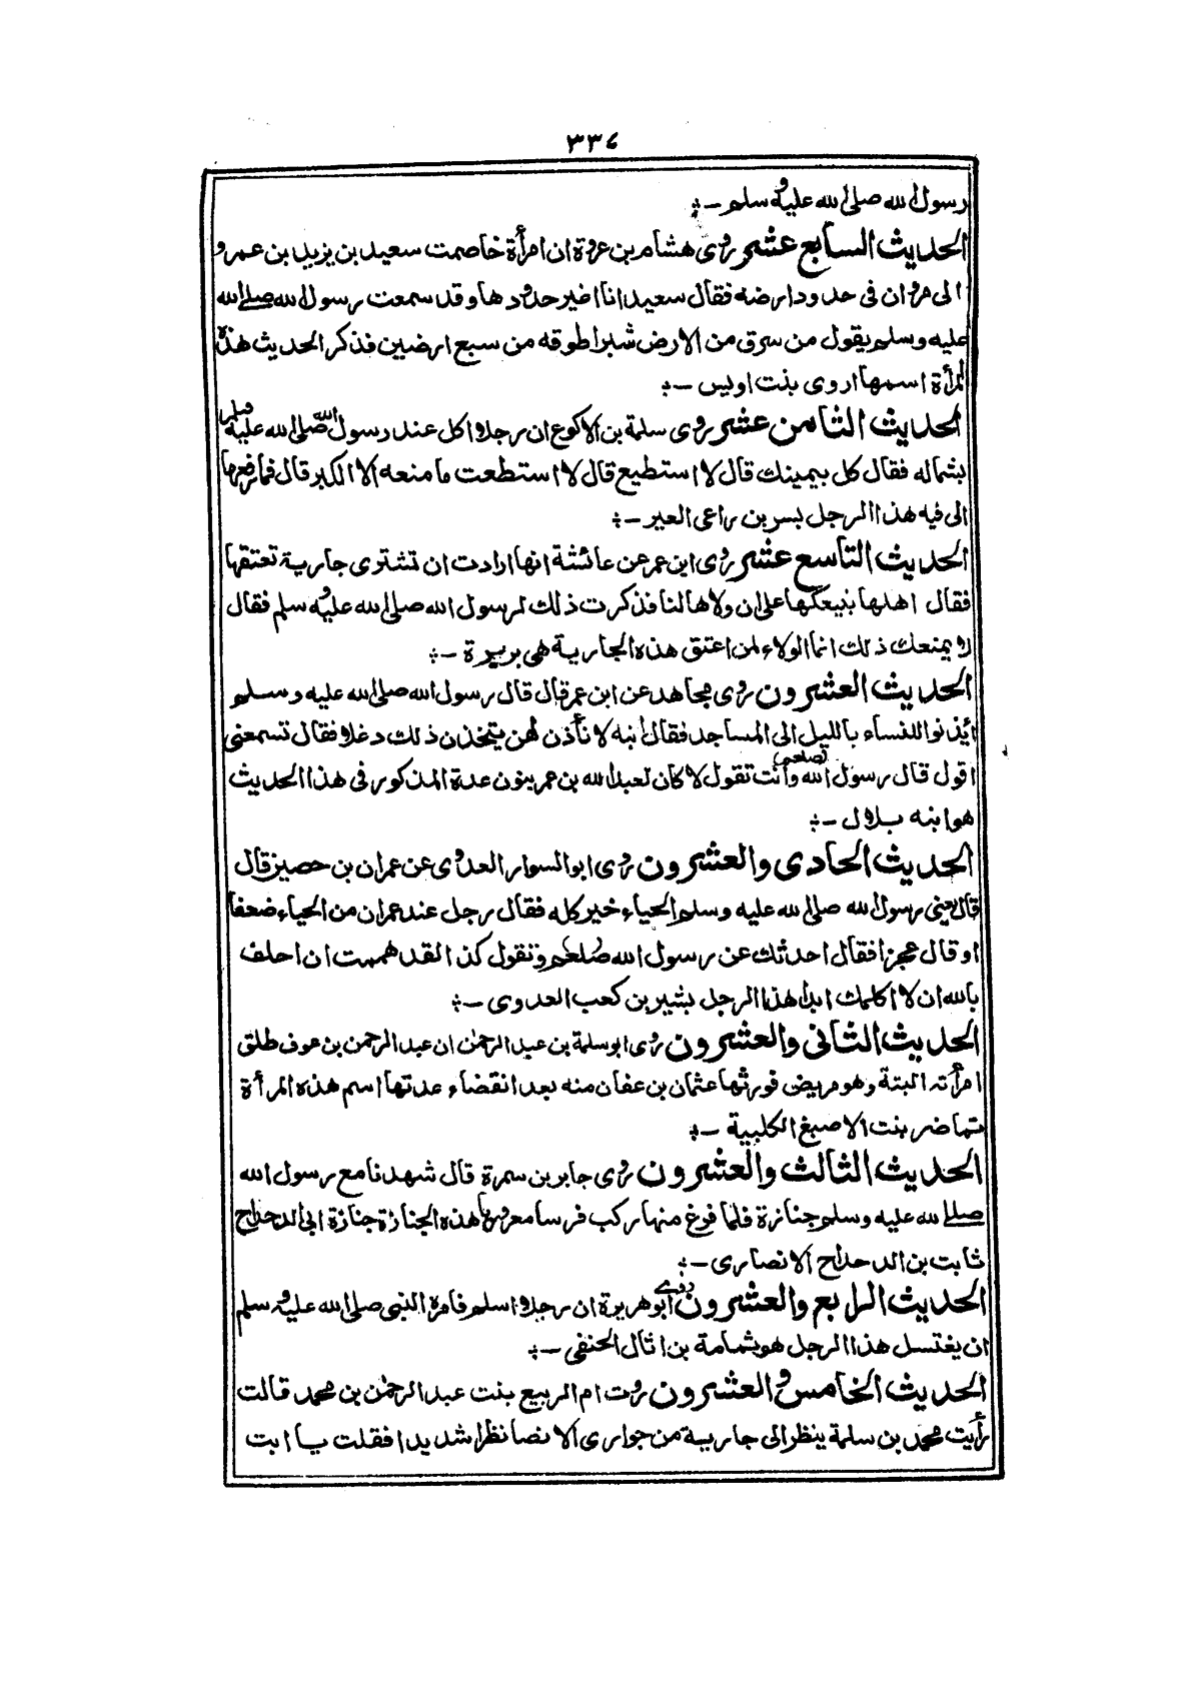 ٣٣٤
رسول الله صلى الله عليه وسلم -؞
الحديث السابع عشر روى هشام بن عروة ان امرأة خاصمت سعيد بن يزيد بن عمرو
الى مروان فى حدود ارضه فقال سعيد انا اغير حدودها وقد سمعت رسول الله صلى الله
عليه وسلم يقول من سرق من الارض شبرا طوقه من سبع ارضين فذكر الحديث هذه
المرأة اسمها اروى بنت اويس -؞
الحديث الثامن عشر روى سلمة بن الاكوع ان رجلا اكل عند رسول الله صلى الله عليه وسلم
بشماله فقال كل بيمينك قال لا استطيع قال لا استطعت ما منعه الا الكبر قال فما رفعها
الى فيه هذا الرجل بسر بن راعى العير -؞
الحديث التاسع عشر روى ابن عمر عن عائشة انها ارادت ان تشترى جارية تعتقها
فقال اهلها نبيعكها على ان ولاها لنا فذكرت ذلك لرسول الله صلى الله عليه وسلم فقال
لا يمنعك ذلك انما الولاء لمن اعتق هذه الجارية هى بريرة -؞
الحديث العشرون روى مجاهد عن ابن عمر قال قال رسول الله صلى الله عليه وسلم
ائذنوا للنساء بالليل الى المساجد فقال ابنه لا نأذن لهن يتخذن ذلك دغلا فقال تسمعنى
اقول قال رسول الله صلعم وأنت تقول لا كان لعبد الله بن عمر بنون عدة المذكور فى هذا الحديث
هو ابنه بلال -؞
الحديث الحادى والعشرون روى ابو السوار العدوى عن عمران بن حصين قال
قال يعنى رسول الله صلى الله عليه وسلم الحياء خير كله فقال رجل عند عمران من الحياء ضعفا
او قال عجزا فقال احدثك عن رسول الله صلعم وتقول كذا لقد هممت ان احلف
بالله ان لا اكلمك ابدا هذا الرجل بشير بن كعب العدوى -؞
الحديث الثانى والعشرون روى ابو سلمة بن عبد الرحمٰن ان عبد الرحمن بن عوف طلق
امرأته البتة وهو مريض فورثها عثمان بن عفان منه بعد انقضاء عدتها اسم هذه المرأة
تماضر بنت الاصبغ الكلبية -؞
الحديث الثالث والعشرون روى جابر بن سمرة قال شهدنا مع رسول الله
صلى الله عليه وسلم جنازة فلما فرغ منها ركب فرسا معروريا هذه الجنازة جنازة ابى الدحداح
ثابت بن الدحداح الانصارى -؞
الحديث الرابع والعشرون روى ابو هريرة ان رجلا اسلم فامره النبى صلى الله عليه وسلم
ان يغتسل هذا الرجل هو ثمامة بن اثال الحنفى -؞
الحديث الخامس والعشرون روت ام الربيع بنت عبد الرحمٰن بن محمد قالت
رأيت محمد بن سلمة ينظر الى جارية من جوارى الانصا نظرا شديدا فقلت يا ابت